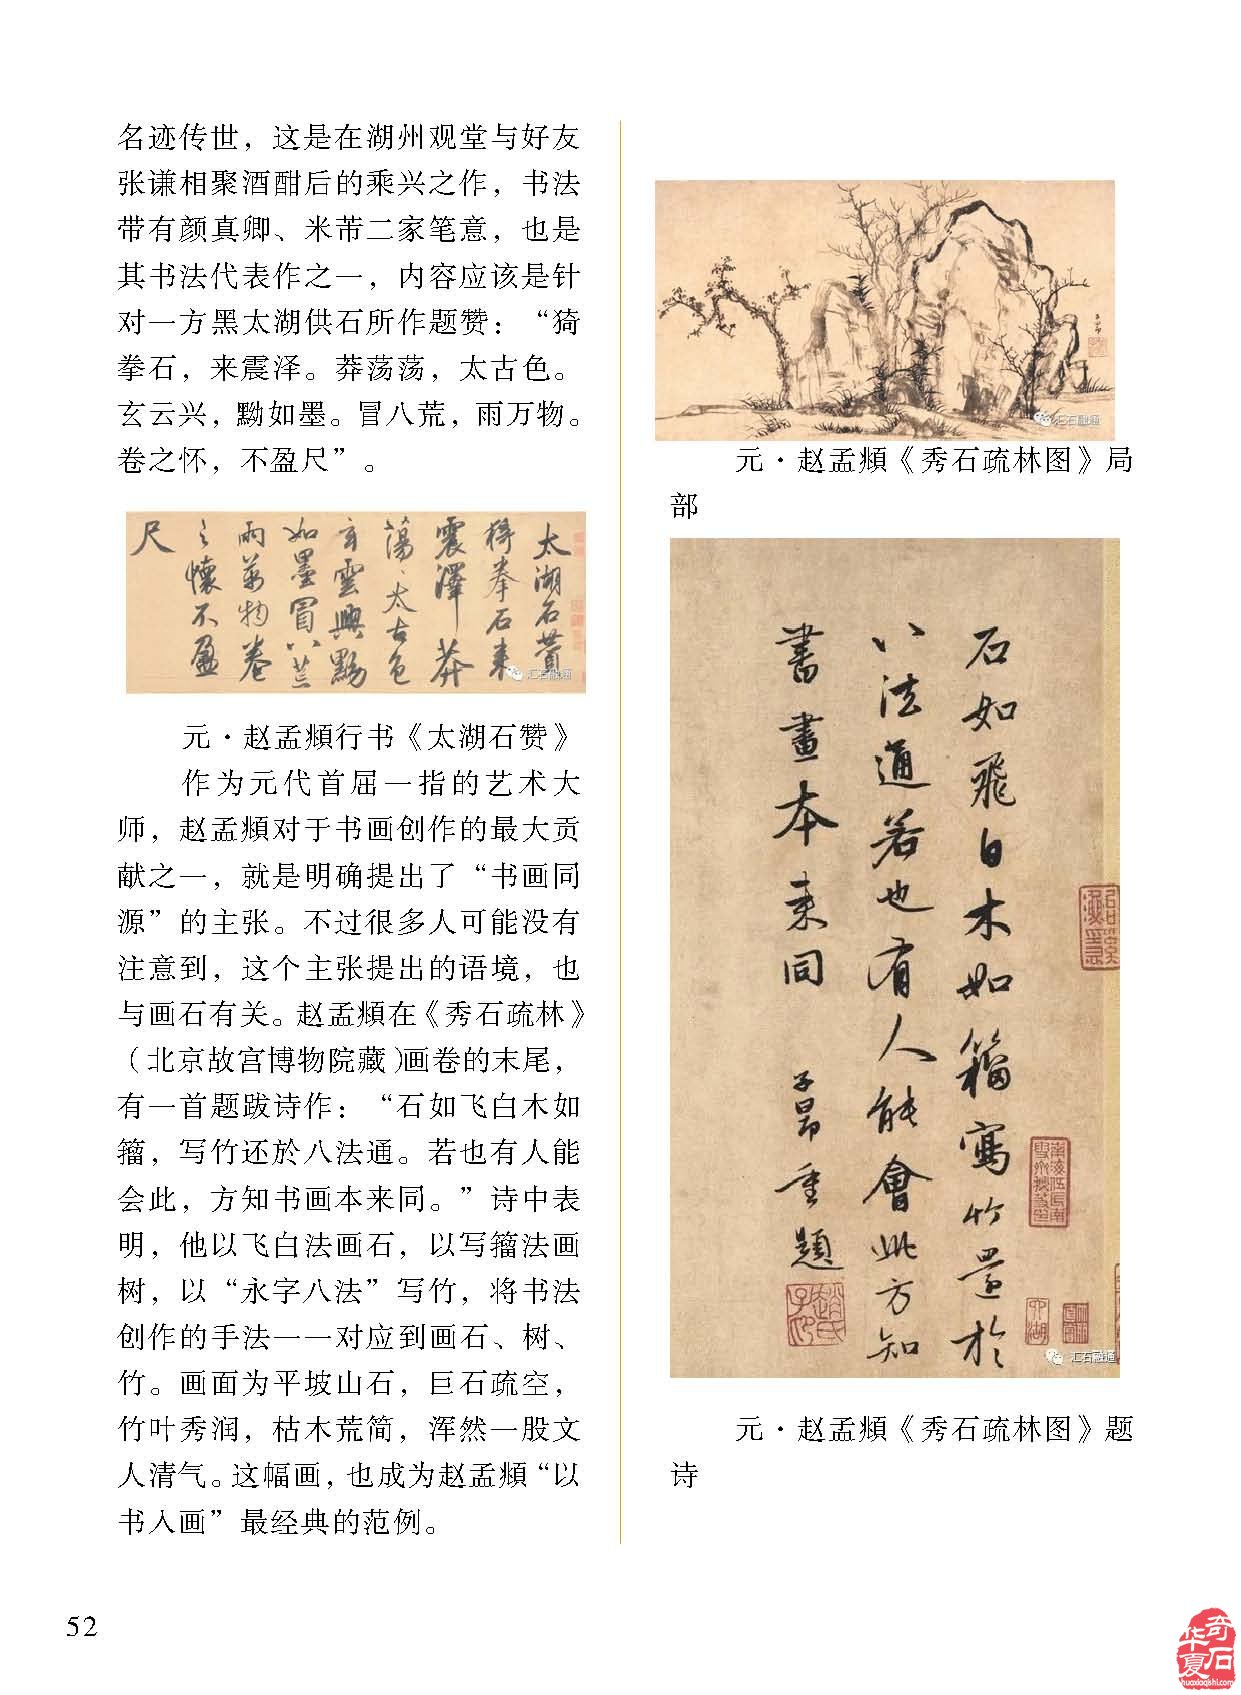 名迹传世，这是在湖州观堂与好友
张谦相聚酒酣后的乘兴之作，书法
带有颜真卿、米芾二家笔意，也是
其书法代表作之一，内容应该是针
对一方黑太湖供石所作题赞：“猗
拳石，来震泽。莽荡荡，太古色。
玄云兴，黝如墨。冒八荒，雨万物。
卷之怀，不盈尺”。
太湖石赞
猗拳石来
震泽莽
荡、太古色
玄雲興黝
如墨冒八荒
雨萬物卷
之懷不盈
尺
汇石融通
元·赵孟頫行书《太湖石赞》
作为元代首屈一指的艺术大
师，赵孟頫对于书画创作的最大贡
献之一，就是明确提出了“书画同
源”的主张。不过很多人可能没有
注意到，这个主张提出的语境，也
与画石有关。赵孟頫在《秀石疏林》
（北京故宫博物院藏)画卷的末尾，
有一首题跋诗作：“石如飞白木如
籀，写竹还於八法通。若也有人能
会此，方知书画本来同。”诗中表
明，他以飞白法画石，以写籀法画
树，以“永字八法”写竹，将书法
创作的手法一一对应到画石、树、
竹。画面为平坡山石，巨石疏空，
竹叶秀润，枯木荒简，浑然一股文
人清气。这幅画，也成为赵孟頫“以
书入画”最经典的范例。
汇石融通
元·赵孟頫《秀石疏林图》局
部
石如飛白木如籀寫竹還於
八法通若也有人能會此方知
書畫本来同
子昂重題
汇石融通
元·赵孟頫《秀石疏林图》题
诗
52
华夏奇石
huaxiaqishi.com